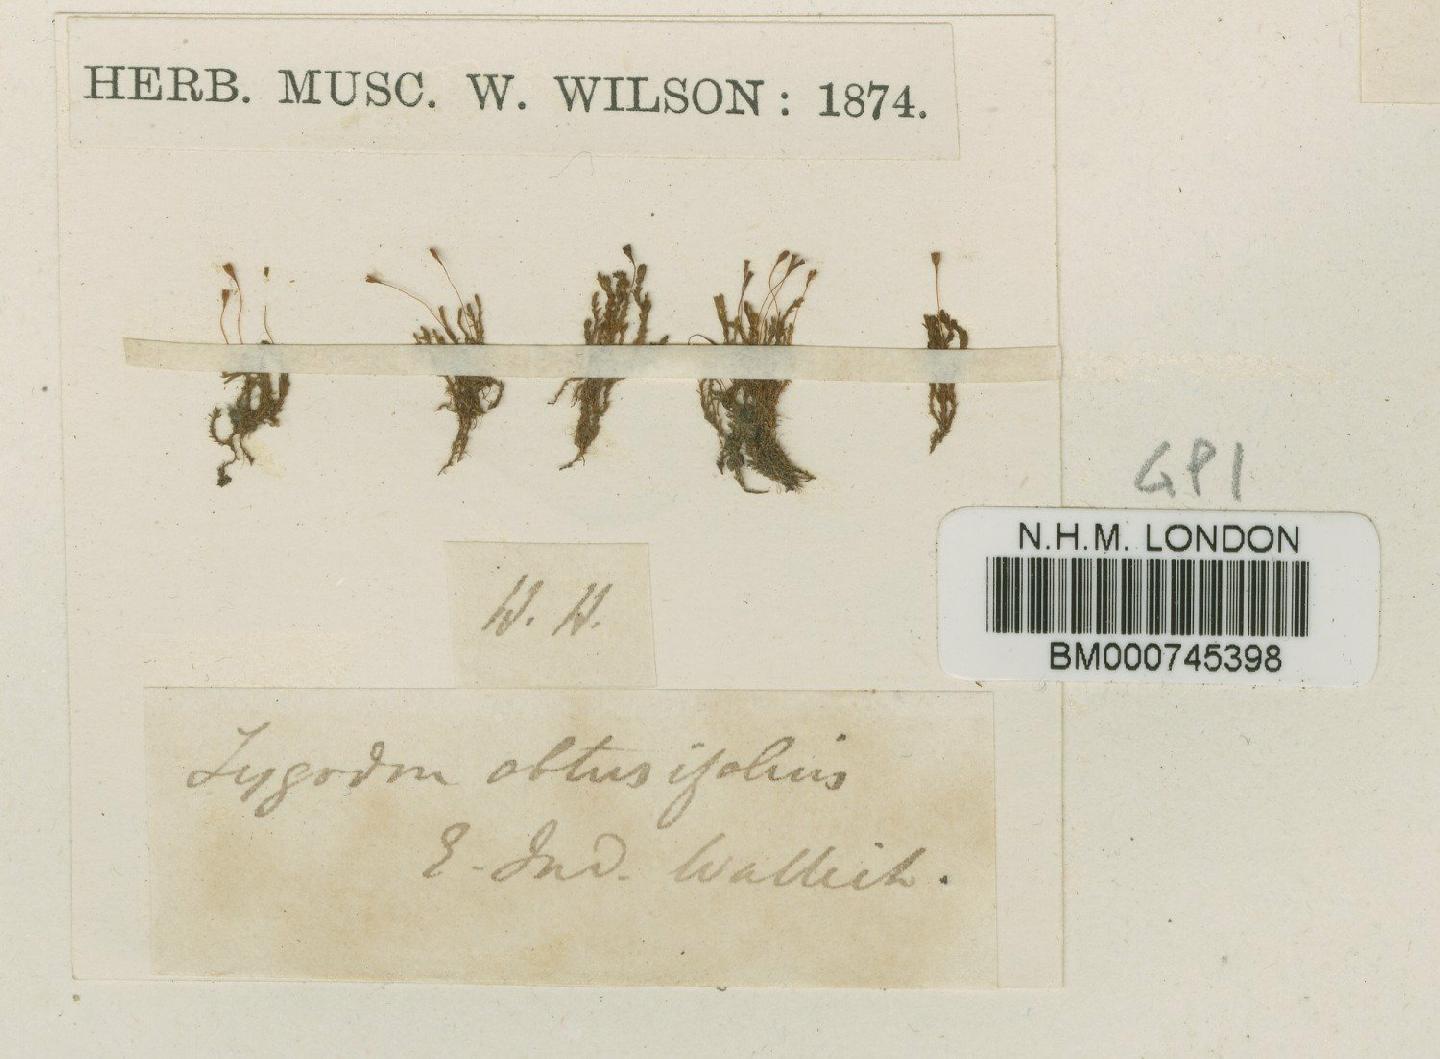 HERB. MUSC. W. WILSON: 1874.
GP1
N.H.M. LONDON
BM000745398
W. H.
Zygodon obtusifolius
E. Ind. Wallich.